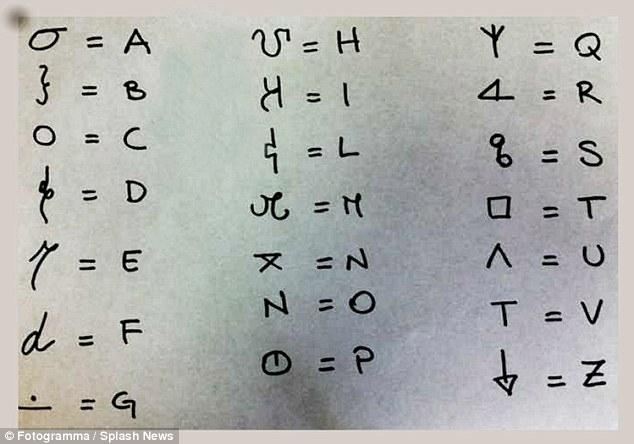 σ = A
} = B
O = C
= D
= E
d = F
∸ = G
= H
= I
= L
= M
= N
N = O
= P
= Q
= R
= S
□ = T
Λ = U
T = V
= Z
© Fotogramma / Splash News